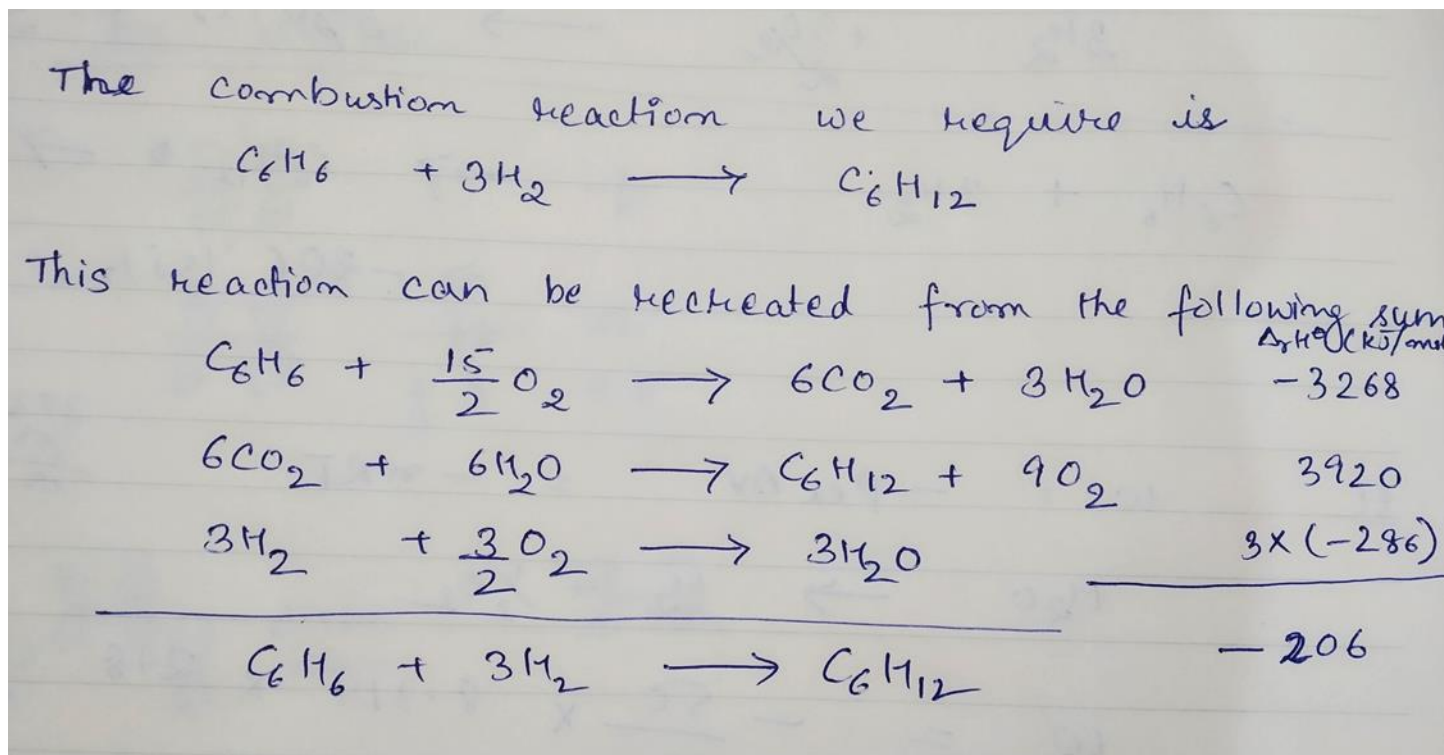 The combustion reaction we require is
C₆H₆ + 3H₂ → C₆H₁₂
This reaction can be recreated from the following sum
ΔᵣH° (kJ/mol
C₆H₆ + 15/2 O₂ → 6CO₂ + 3H₂O -3268
6CO₂ + 6H₂O → C₆H₁₂ + 9O₂ 3920
3H₂ + 3/2 O₂ → 3H₂O 3×(-286)
C₆H₆ + 3H₂ → C₆H₁₂ -206